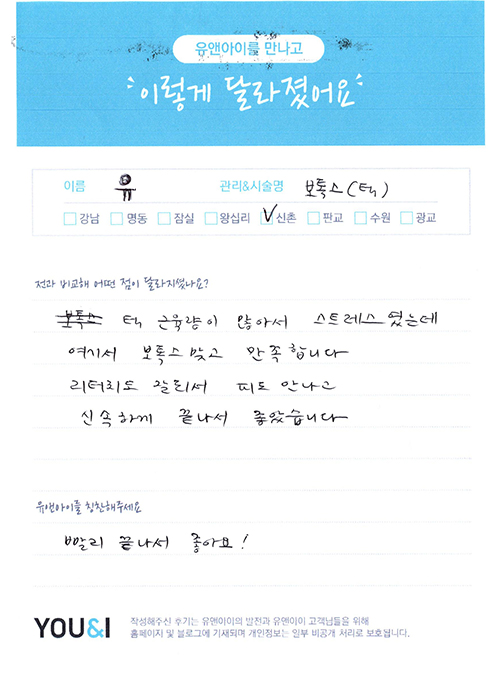 유앤아이를 만나고
이렇게 달라졌어요
이름 유 관리&시술명 보톡스(턱)
강남 명동 잠실 왕십리 신촌 판교 수원 광교
전과 비교해 어떤 점이 달라지셨나요?
보톡스 턱 근육량이 많아서 스트레스였는데
여기서 보톡스 맞고 만족합니다
리터치도 잘 되서 티도 안나고
신속하게 끝나서 좋았습니다
유앤아이를 칭찬해주세요
빨리 끝나서 좋아요!
YOU&I
작성해주신 후기는 유앤아이의 발전과 유앤아이 고객님들을 위해
홈페이지 및 블로그에 기재되며 개인정보는 일부 비공개 처리로 보호됩니다.